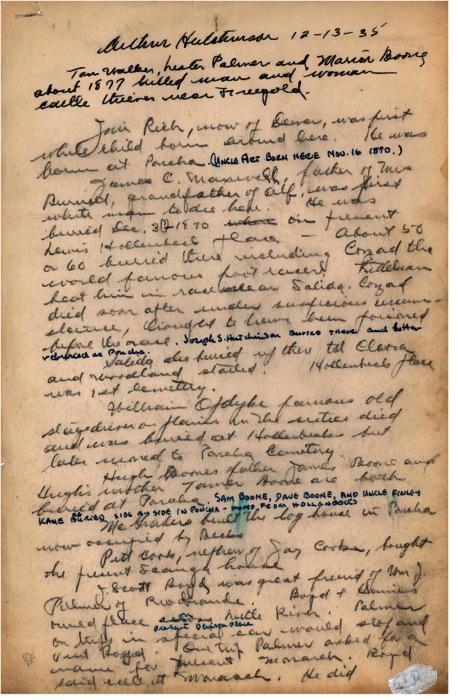 Arthur Hutchinson 12-13-35
Tom Walker, Lester Palmer and Marion Boone
about 1877 killed man and woman
cattle thieves near Freegold.
Tom Rich, now of Denver, was first
white child born around here. He was
born at Poncha. (UNCLE ART BORN HERE NOV. 16 1890.)
James C. Maxwell, father of Mrs
Burnett, grandfather of Alf, was first
white man to die here. He was
buried Dec. 1870 on present
Lewis Hollenbeck place — About 50
or 60 buried there including Cozad the
world famous foot racer.
beat him in race near Salida. Cozad
died soon after under suspicious
thought to have been poisoned
before the race. Joseph S. Hutchinson buried there and later
reburied at Poncha.
Salida also buried up there till Cleora
and Woodland started. Hollenbeck place
was 1st cemetery.
William Opdyke famous old
stagedriver on plains in the sixties died
and was buried at Hollenbecks but
later moved to Poncha Cemetery.
Hugh Boones father James Boone and
Hughs mother Boone are both
buried at Poncha. SAM BOONE, DAVE BOONE, AND UNCLE FINLEY
KANE BURIED SIDE BY SIDE IN PONCHA - MOVED FROM HOLLENBECKS
built the log house in Poncha
now occupied by Becks
Pitt Cook, nephew of Jay Cooke, bought
the present Scanga house
J. Scott Boyd was great friend of Wm J.
Palmer of Rio Grande. Boyd +
owned place little River. Palmer
on trips in special car would stop and
visit Boyd. On trip Palmer asked for a
name for present Monarch. Boyd
said call it Monarch. He did